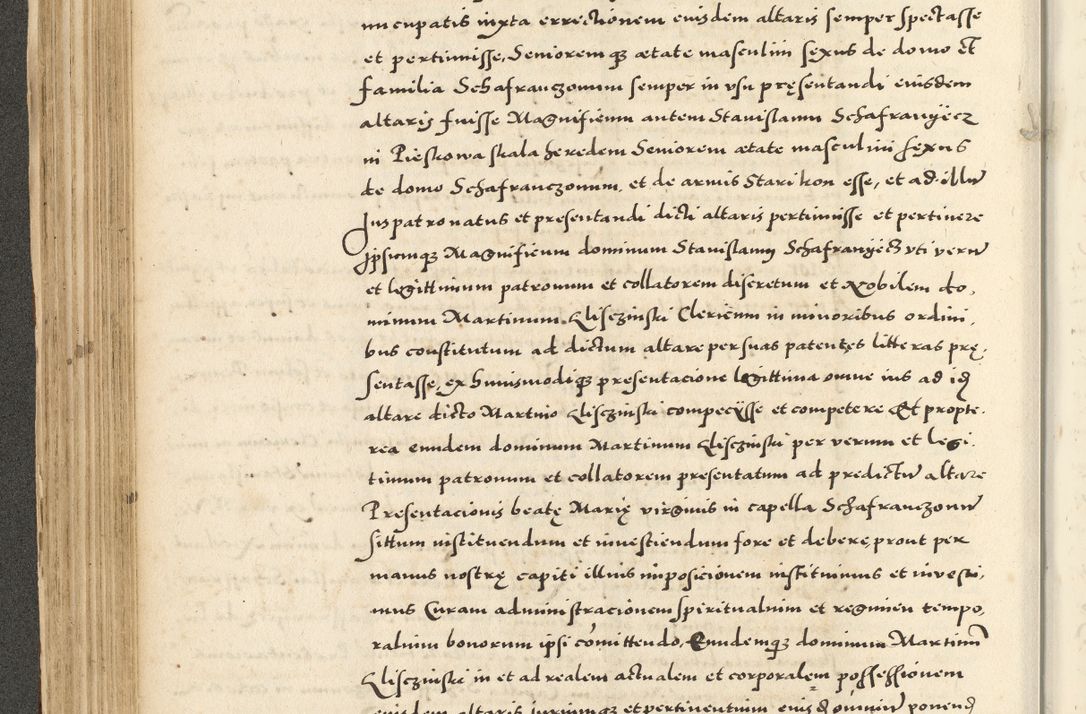 nuncupatis iuxta errectionem eiusdem altaris semper spectasse
et pertinuisse, Senioremq3 ætate masculini sexus de domo et
familia Schafranczonum semper in vsu pręsentandi eiusdem
altaris fuisse Magnificum autem Stanislaum Schafranyecz
in Pieskowa skala heredem Seniorem ætate masculini sexus
de domo Schafranczonum, et de armis Stari kon esse, et ad illū
Jus patronatus et presentandi dicti altaris pertinuisse et pertinere
Jpsumq3 Magnificum dominum Stanislaum Schafranyecz vti verū
et legittimum patronum et collatorem discretum et Nobilem do,
minum Martinum Clericum in minoribus ordini,
bus constitutum ad dictum altare per suas patentes litteras prę,
sentasse, ex huiusmodiq3 presentacione legittima omne ius ad id
altare dicto Martino competysse et competere Et propte,
rea eundem dominum Martinum per verum et legi,
timum patronum et collatorem presentatum ad predictū altare
Presentacionis beatę Marię virginis in capella Schafranczonū
situm instituendum et inuestiendum fore et debere, prout per
manus nostrę capiti illius imposicionem instituimus et investi,
mus Curam administracionem spiritualium et regimen tempo,
ralium bonorum ipsi comittendo, Eundemq3 dominum Martinū
in et ad realem actualem et corporalem possessionem
eiusdem altaris iuriumq3 et pertinentium eius omniū ponend